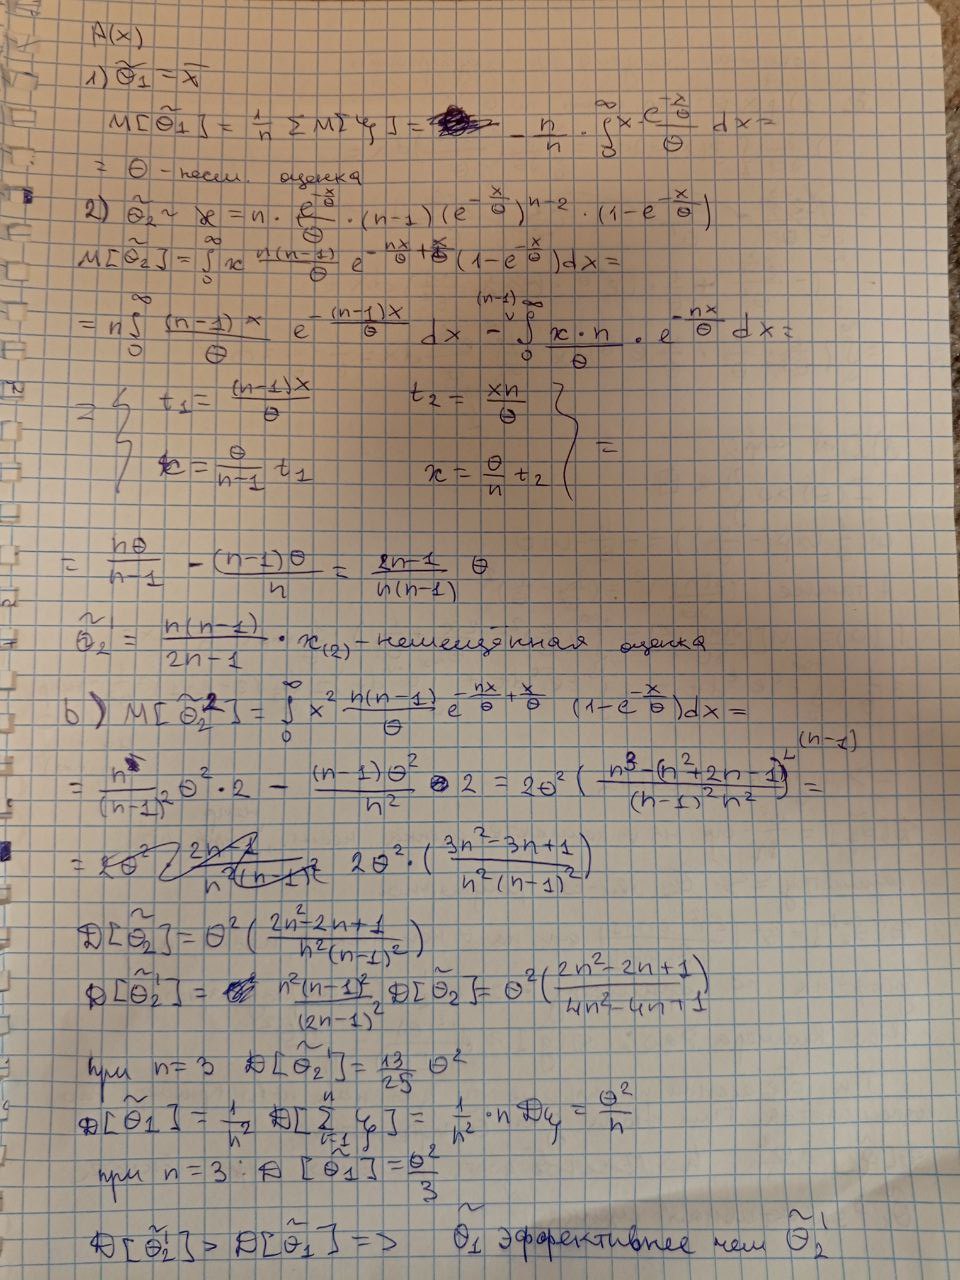 A(x)
1) θ̃₁ = x̄
M[θ̃₁] = 1/n Σ M[ξ] = n/n · ∫₀^∞ x · e^(-x/θ)/θ dx =
= θ - несм. оценка
2) θ̃₂ ~ x = n · e^(-x/θ)/θ · (n-1) (e^(-x/θ))^(n-2) · (1-e^(-x/θ))
M[θ̃₂] = ∫₀^∞ x n(n-1)/θ e^(-nx/θ + x/θ) (1-e^(-x/θ))dx =
= n ∫₀^∞ (n-1)x/θ e^(-(n-1)x/θ) dx - (n-1) ∫₀^∞ x·n/θ · e^(-nx/θ) dx =
= { t₁ = (n-1)x/θ t₂ = xn/θ
x = θ/(n-1) t₁ x = θ/n t₂ } =
= nθ/(n-1) - (n-1)θ/n = (2n-1)/(n(n-1)) θ
θ̃₂' = n(n-1)/(2n-1) · x₍₂₎ - несмещённая оценка
b) M[θ̃₂²] = ∫₀^∞ x² n(n-1)/θ e^(-nx/θ + x/θ) (1-e^(-x/θ))dx =
= n/(n-1)² θ²·2 - (n-1)θ²/n² 2 = 2θ² ( (n³-(n²+2n-1)(n-1))/((n-1)²n²) ) =
= 2θ² · ( (3n²-3n+1)/(n²(n-1)²) )
D[θ̃₂] = θ² ( (2n²-2n+1)/(n²(n-1)²) )
D[θ̃₂'] = n²(n-1)²/(2n-1)² D[θ̃₂] = θ² ( (2n²-2n+1)/(4n²-4n+1) )
при n=3 D[θ̃₂'] = 13/25 θ²
D[θ̃₁] = 1/n² D[Σ ξ] = 1/n² · n Dξ = θ²/n
при n=3 : D [θ̃₁] = θ²/3
D[θ̃₂'] > D[θ̃₁] => θ̃₁ эффективнее чем θ̃₂'